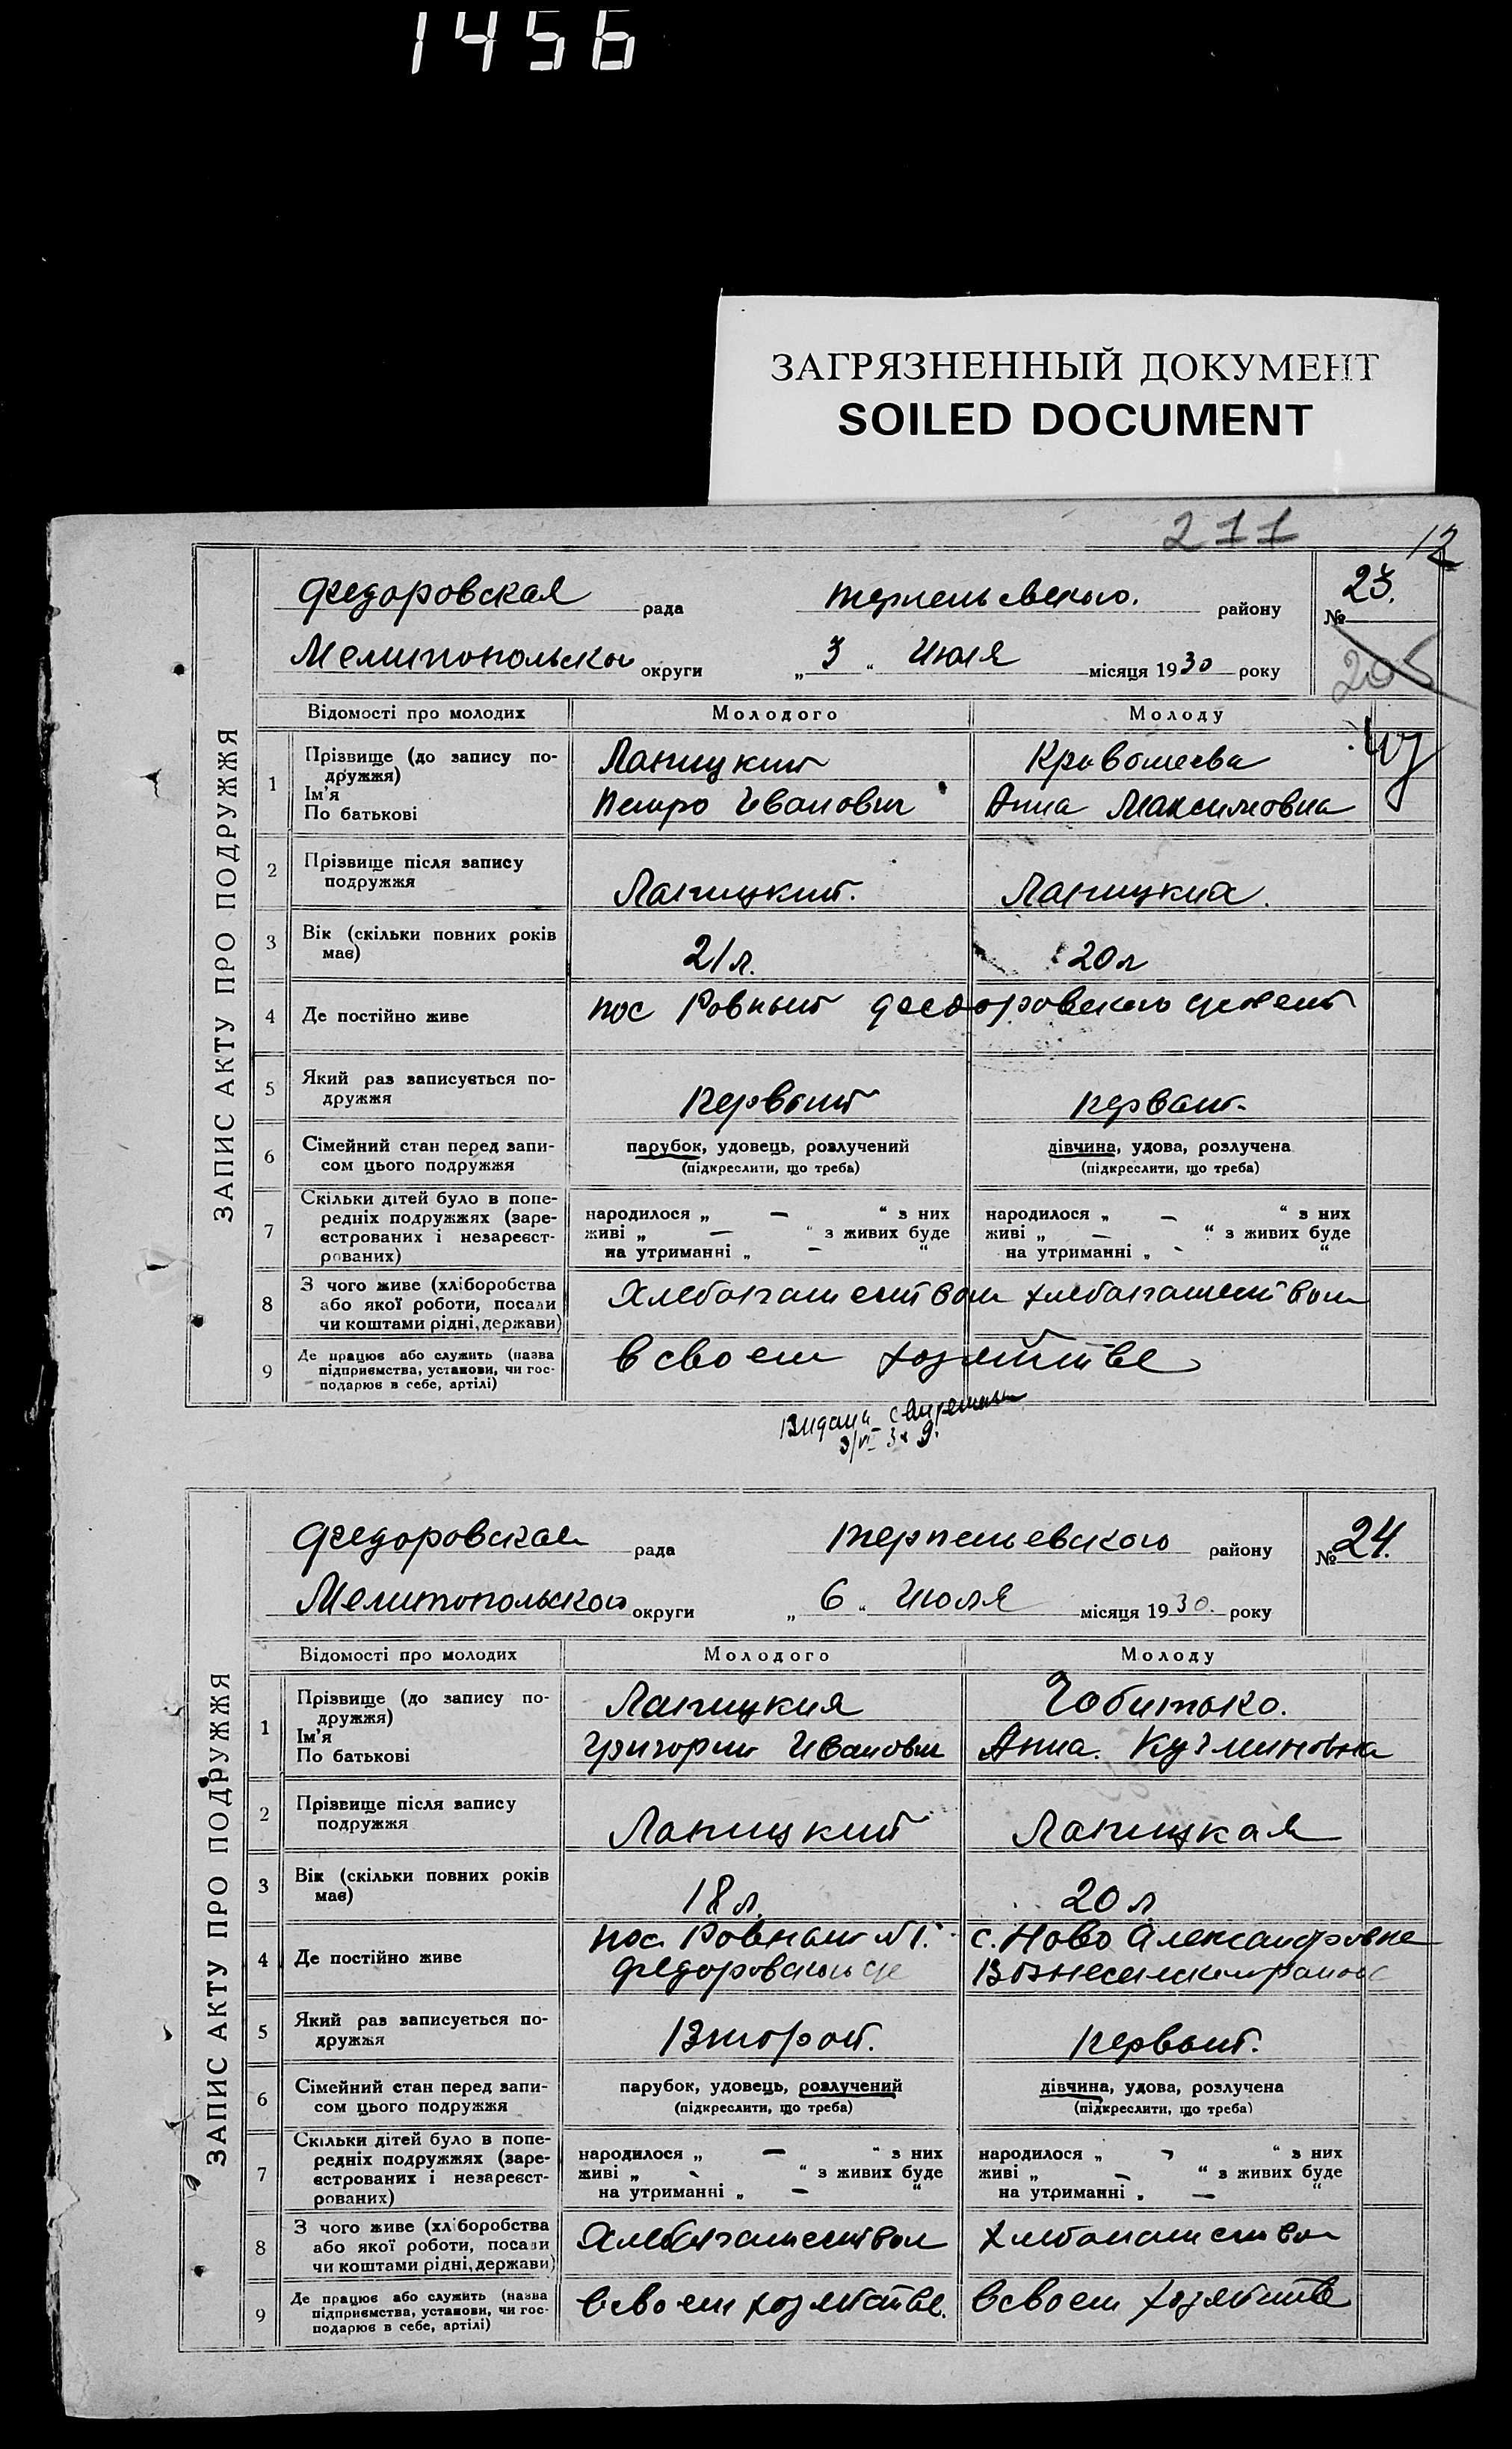 1456
ЗАГРЯЗНЕННЫЙ ДОКУМЕНТ
SOILED DOCUMENT
211
12
ЗАПИС АКТУ ПРО ПОДРУЖЖЯ
Федоровская рада района району № 23.
Мелитопольского округи „ 3 “ Июля місяця 1930 року 205
Відомості про молодих Молодого Молоду
1 Прізвище (до запису по-
дружжя) Лапицкий Кравошеева
Ім'я
По батькові Петро Иванович Анна Максимовна
2 Прізвище після запису
подружжя Лапицкий. Лапицкиа.
3 Вік (скільки повних років
має) 21 л. 20 л
4 Де постійно живе пос Ровный федоровского
5 Який раз записується по-
дружжя Первый первый.
6 Сімейний стан перед запи-
сом цього подружжя парубок, удовець, розлучений дівчина, удова, розлучена
(підкреслити, що треба) (підкреслити, що треба)
7 Скільки дітей було в попе-
редніх подружжях (заре-
єстрованих і незареєст-
рованих)
народилося „ — “ з них народилося „ — “ з них
живі „ — “ з живих буде живі „ — “ з живих буде
на утриманні „ - “ на утриманні „ - “
8 З чого живе (хліборобства
або якої роботи, посади
чи коштами рідні, держави) Хлебопашеством хлебопашеством
9 Де працює або служить (назва
підприємства, установи, чи гос-
подарює в себе, артілі) в своем хозяйстве
ЗАПИС АКТУ ПРО ПОДРУЖЖЯ
Федоровская рада Терпеньевского району № 24.
Мелитопольского округи „ 6 “ Июля місяця 1930. року
Відомості про молодих Молодого Молоду
1 Прізвище (до запису по-
дружжя) Лапицкия Чобитько.
Ім'я
По батькові Григорий Иванович Анна. Кузминовна
2 Прізвище після запису
подружжя Лапицкий Лапицкая
3 Вік (скільки повних років
має) 18 л. 20 л
4 Де постійно живе пос. Ровный №1. с. Ново Александровке
5 Який раз записується по-
дружжя Второй. первый.
6 Сімейний стан перед запи-
сом цього подружжя парубок, удовець, розлучений дівчина, удова, розлучена
(підкреслити, що треба) (підкреслити, що треба)
7 Скільки дітей було в попе-
редніх подружжях (заре-
єстрованих і незареєст-
рованих)
народилося „ — “ з них народилося „ - “ з них
живі „ - “ з живих буде живі „ - “ з живих буде
на утриманні „ — “ на утриманні „ — “
8 З чого живе (хліборобства
або якої роботи, посади
чи коштами рідні, держави) Хлебопашеством хлебопашество
9 Де працює або служить (назва
підприємства, установи, чи гос-
подарює в себе, артілі) в своем хозяйстве. в своем хозяйстве